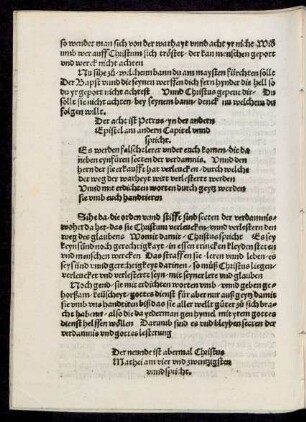 so wendet man sich von der warhayt vnnd acht yr nicht Wid
umb wer auff Christum sich tröstet, der kan menschen geport
vnd werck nicht achten
Nu sihe zů, welchem bann du am maysten fürchten sollt
Der Bapst vnnd die seynen werffen dich fern hynder die hell so
du yr geport nicht achtest Vnnd Christus gepeut dir, Du
sollt sie nicht achten, bey seynem bann, denck nu welchem du
folgen willt.
Der acht ist Petrus, yn der andern
Epistel am andern Capitel vnnd
spricht.
Es werden falsch lerer vnder euch komen, die da
neben eynfüren secten der verdamnis. Vnnd den
hern der sie erkaufft hat verlencken, durch wilche
der weg der warheyt wirt verlestertt werden
Vnnd mit erdichten worten durch geytz werden
sie vmb euch handtieren
Sihe da, die orden vnnd stifft sind secten der verdamnis,
woher da her, das sie Christum verlencken, vnnd verlestern den
weg des glaubens Womit damit, Christus spricht, Es sey
keyn sünd noch gerechtigkayt, in essen trincken kleydern stetten
vnd menschen wercken Das straffen sie, leren vnnd leben, es
sey sünd vnnd gerechtigkeyt darinen, so můß Christus liegen,
verlencket vnd verlestert seyn, mit seyner lere vnd glauben
Noch gend, sie mit erdichten worten vmb, vnnd geben ge-
horsam, keüscheyt, gottes dienst für aber nur auß geytz damit
sie vmb vns handtiren biß das sie aller wellt güter zů sich brac
ht habens, also die da yederman gen hymel mit yrem gottes
dienst helffen wöllen Darumb sind es vnd bleyben secten der
verdamnis vnd gottes lesterung
Der neunde ist abermal Christus
Mathei am vier vnd zwentzigsten
vnnd spricht.